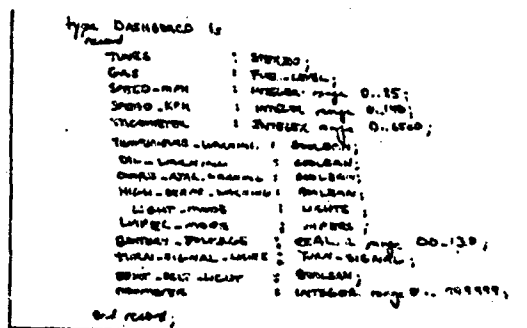 type DASHBOARD is
record
TUNES : STEREO;
GAS : FUEL_LEVEL;
SPEED_MPH : INTEGER range 0..85;
SPEED_KPH : INTEGER range 0..140;
TACHOMETER : INTEGER range 0..6500;
TEMPERATURE_WARNING : BOOLEAN;
OIL_WARNING : BOOLEAN;
: BOOLEAN;
HIGH_BEAMS_WARNING : BOOLEAN;
LIGHT_MODE : LIGHTS
WIPER_MODE : WIPERS
BATTERY_VOLTAGE : REAL range 0.0..13.0;
TURN_SIGNAL : TURN_SIGNAL;
SEAT_BELT_LIGHT : BOOLEAN;
ODOMETER : INTEGER range 0..999999;
end record;